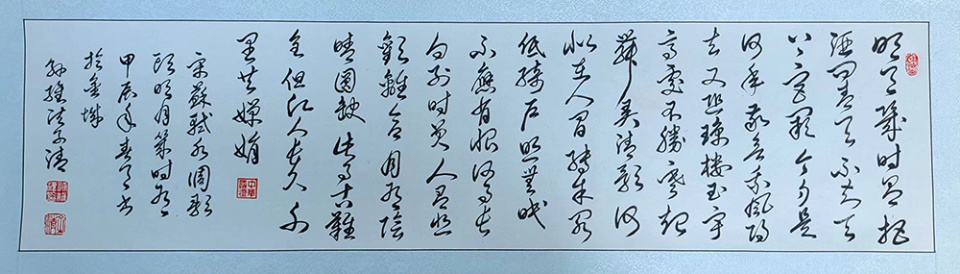 明月幾時有把
酒問青天不知天
上宮闕今夕是
何年我欲乘風歸
去又恐瓊樓玉宇
高處不勝寒起
舞弄清影何
似在人間轉朱閣
低綺戶照無眠
不應有恨何事長
向別時圓人有悲
歡離合月有陰
晴圓缺此事古難
全但願人長久千
里共嬋娟
宋蘇軾水調歌
頭明月幾時有
甲辰年春月書
於金城